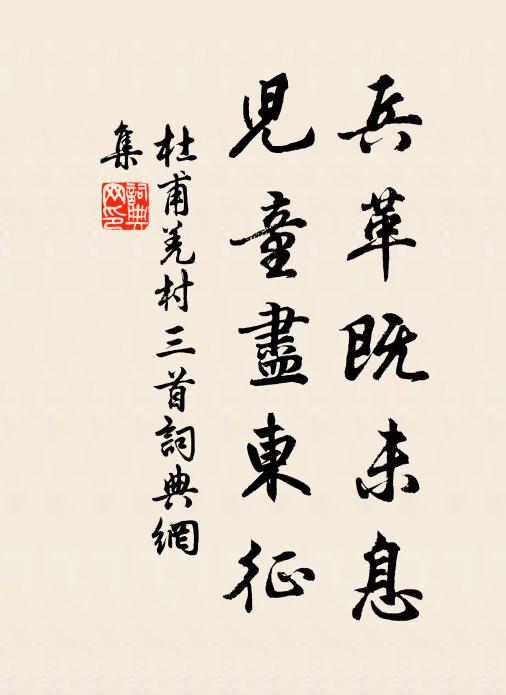 兵革既未息
兒童盡東征
杜甫羌村三首詞典網
集
詞典
网印